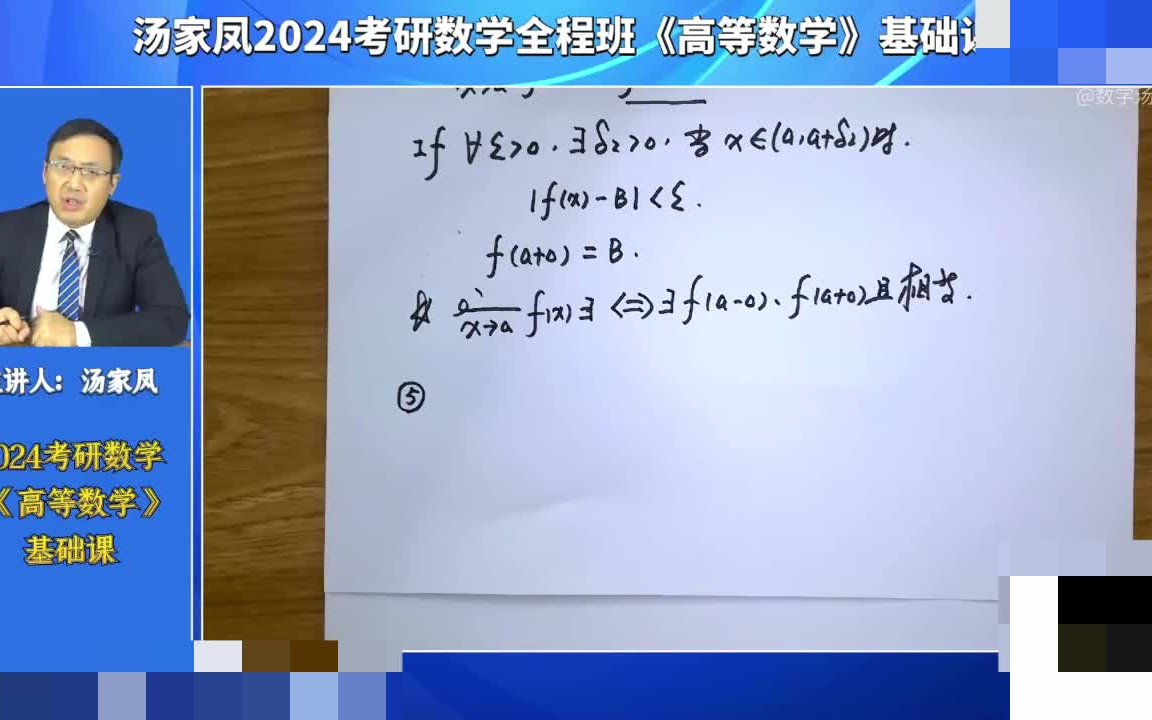 汤家凤2024考研数学全程班《高等数学》基础
@数学汤
If ∀ε>0.∃δ₂>0.当 x∈(a,a+δ₂)时.
|f(x)-B|<ε.
f(a+0)=B.
f(x)∃⇔∃f(a-0)、f(a+0)且相等.
x→a
⑤
讲人：汤家凤
024考研数学
《高等数学》
基础课